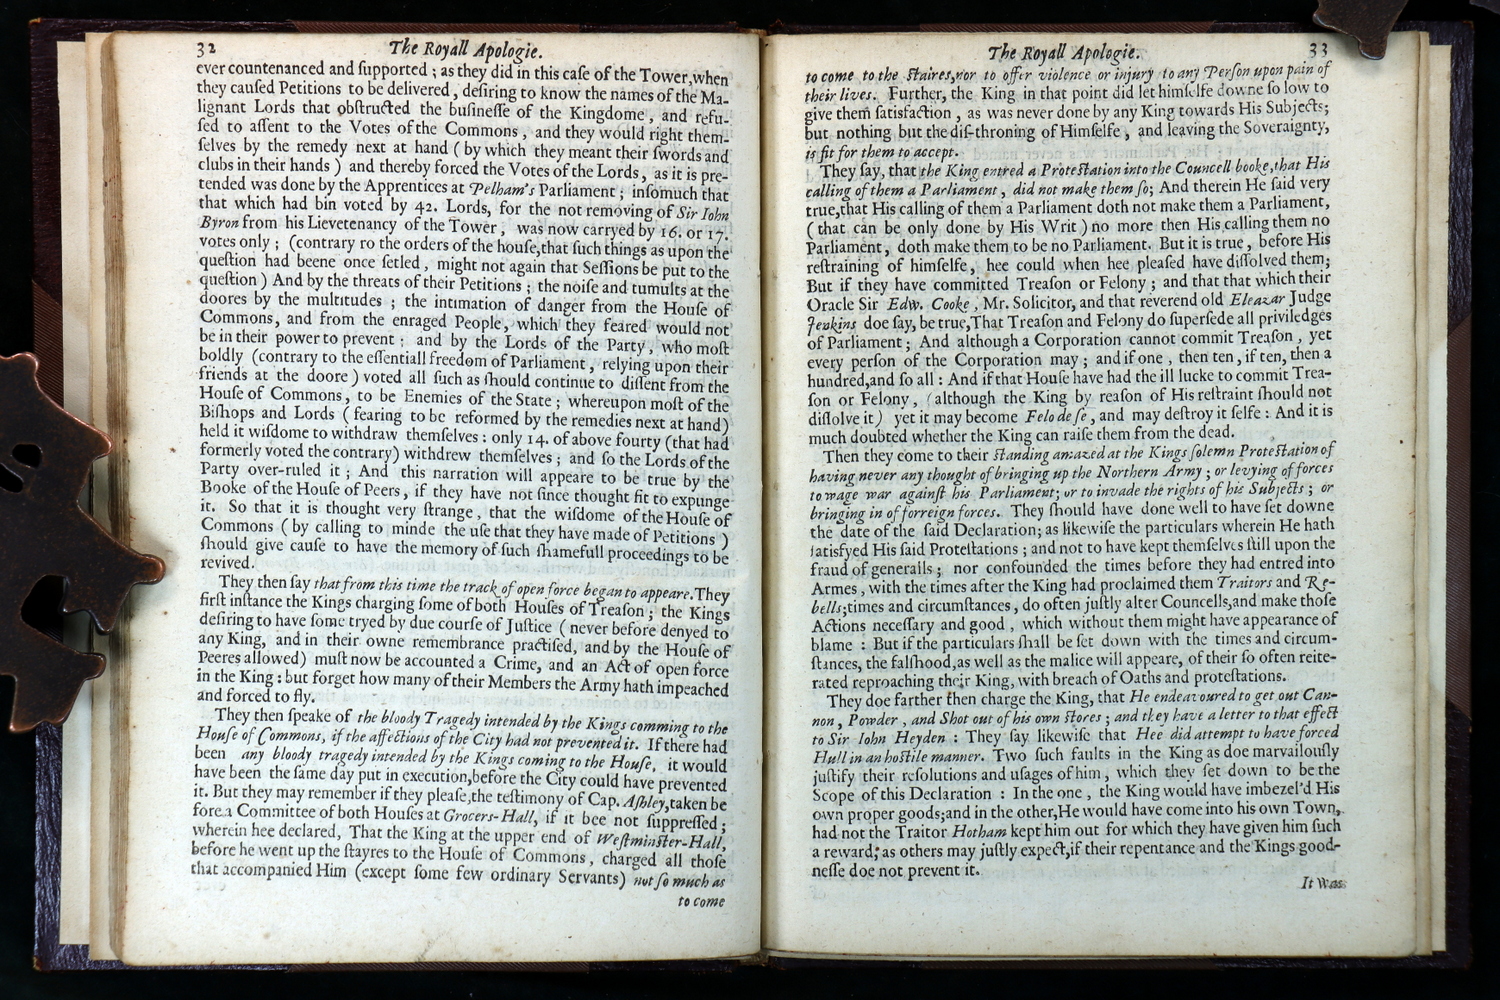 32 The Royall Apologie.
ever countenanced and ſupported ; as they did in this caſe of the Tower,when
they cauſed Petitions to be delivered, deſiring to know the names of the Ma-
lignant Lords that obſtructed the buſineſſe of the Kingdome, and refu-
ſed to aſſent to the Votes of the Commons, and they would right them-
ſelves by the remedy next at hand ( by which they meant their ſwords and
clubs in their hands ) and thereby forced the Votes of the Lords, as it is pre-
tended was done by the Apprentices at Pelham's Parliament ; inſomuch that
that which had bin voted by 42. Lords, for the not removing of Sir Iohn
Byron from his Lievetenancy of the Tower, was now carryed by 16. or 17.
votes only ; (contrary ro the orders of the houſe,that ſuch things as upon the
queſtion had beene once ſetled, might not again that Seſſions be put to the
queſtion ) And by the threats of their Petitions ; the noiſe and tumults at the
doores by the multitudes ; the intimation of danger from the Houſe of
Commons, and from the enraged People, which they feared would not
be in their power to prevent ; and by the Lords of the Party, who moſt
boldly (contrary to the eſſentiall freedom of Parliament, relying upon their
friends at the doore ) voted all ſuch as ſhould continue to diſſent from the
Houſe of Commons, to be Enemies of the State ; whereupon moſt of the
Biſhops and Lords ( fearing to be reformed by the remedies next at hand)
held it wiſdome to withdraw themſelves : only 14. of above fourty (that had
formerly voted the contrary) withdrew themſelves ; and ſo the Lords of the
Party over-ruled it ; And this narration will appeare to be true by the
Booke of the Houſe of Peers, if they have not ſince thought fit to expunge
it. So that it is thought very ſtrange, that the wiſdome of the Houſe of
Commons ( by calling to minde the uſe that they have made of Petitions )
ſhould give cauſe to have the memory of ſuch ſhamefull proceedings to be
revived.
They then ſay that from this time the track of open force began to appeare. They
firſt inſtance the Kings charging ſome of both Houſes of Treaſon ; the Kings
deſiring to have ſome tryed by due courſe of Juſtice ( never before denyed to
any King, and in their owne remembrance practiſed, and by the Houſe of
Peeres allowed) muſt now be accounted a Crime, and an Act of open force
in the King : but forget how many of their Members the Army hath impeached
and forced to fly.
They then ſpeake of the bloody Tragedy intended by the Kings comming to the
Houſe of Commons, if the affections of the City had not prevented it. If there had
been any bloody tragedy intended by the Kings coming to the Houſe, it would
have been the ſame day put in execution,before the City could have prevented
it. But they may remember if they pleaſe,the teſtimony of Cap. Aſhley,taken be
fore a Committee of both Houſes at Grocers-Hall, if it bee not ſuppreſſed ;
wherein hee declared, That the King at the upper end of Weſtminſter-Hall,
before he went up the ſtayres to the Houſe of Commons, charged all thoſe
that accompanied Him (except ſome few ordinary Servants) not ſo much as
to come
The Royall Apologie. 33
to come to the ſtaires,nor to offer violence or injury to any Perſon upon pain of
their lives. Further, the King in that point did let himſelfe downe ſo low to
give them ſatisfaction, as was never done by any King towards His Subjects;
but nothing but the diſ-throning of Himſelfe, and leaving the Soveraignty,
is fit for them to accept.
They ſay, that the King entred a Proteſtation into the Councell booke,that His
calling of them a Parliament, did not make them ſo; And therein He ſaid very
true,that His calling of them a Parliament doth not make them a Parliament,
( that can be only done by His Writ ) no more then His calling them no
Parliament, doth make them to be no Parliament. But it is true, before His
reſtraining of himſelfe, hee could when hee pleaſed have diſſolved them;
But if they have committed Treaſon or Felony ; and that that which their
Oracle Sir Edw. Cooke, Mr. Solicitor, and that reverend old Eleazar Judge
Jenkins doe ſay, be true,That Treaſon and Felony do ſuperſede all priviledges
of Parliament ; And although a Corporation cannot commit Treaſon, yet
every perſon of the Corporation may ; and if one, then ten, if ten, then a
hundred,and ſo all : And if that Houſe have had the ill lucke to commit Trea-
ſon or Felony, (although the King by reaſon of His reſtraint ſhould not
diſſolve it) yet it may become Felo de ſe, and may deſtroy it ſelfe : And it is
much doubted whether the King can raiſe them from the dead.
Then they come to their ſtanding amazed at the Kings ſolemn Proteſtation of
having never any thought of bringing up the Northern Army ; or levying of forces
to wage war againſt his Parliament; or to invade the rights of his Subjects ; or
bringing in of forreign forces. They ſhould have done well to have ſet downe
the date of the ſaid Declaration; as likewiſe the particulars wherein He hath
ſatisfyed His ſaid Proteſtations ; and not to have kept themſelves ſtill upon the
fraud of generalls ; nor confounded the times before they had entred into
Armes, with the times after the King had proclaimed them Traitors and Re-
bells;times and circumſtances, do often juſtly alter Councells,and make thoſe
Actions neceſſary and good, which without them might have appearance of
blame : But if the particulars ſhall be ſet down with the times and circum-
ſtances, the falſhood,as well as the malice will appeare, of their ſo often reite-
rated reproaching their King, with breach of Oaths and proteſtations.
They doe farther then charge the King, that He endeavoured to get out Can-
non, Powder, and Shot out of his own ſtores ; and they have a letter to that effect
to Sir Iohn Heyden : They ſay likewiſe that Hee did attempt to have forced
Hull in an hoſtile manner. Two ſuch faults in the King as doe marvailouſly
juſtify their reſolutions and uſages of him, which they ſet down to be the
Scope of this Declaration : In the one, the King would have imbezel'd His
own proper goods;and in the other,He would have come into his own Town,
had not the Traitor Hotham kept him out for which they have given him ſuch
a reward; as others may juſtly expect,if their repentance and the Kings good-
neſſe doe not prevent it.
It was